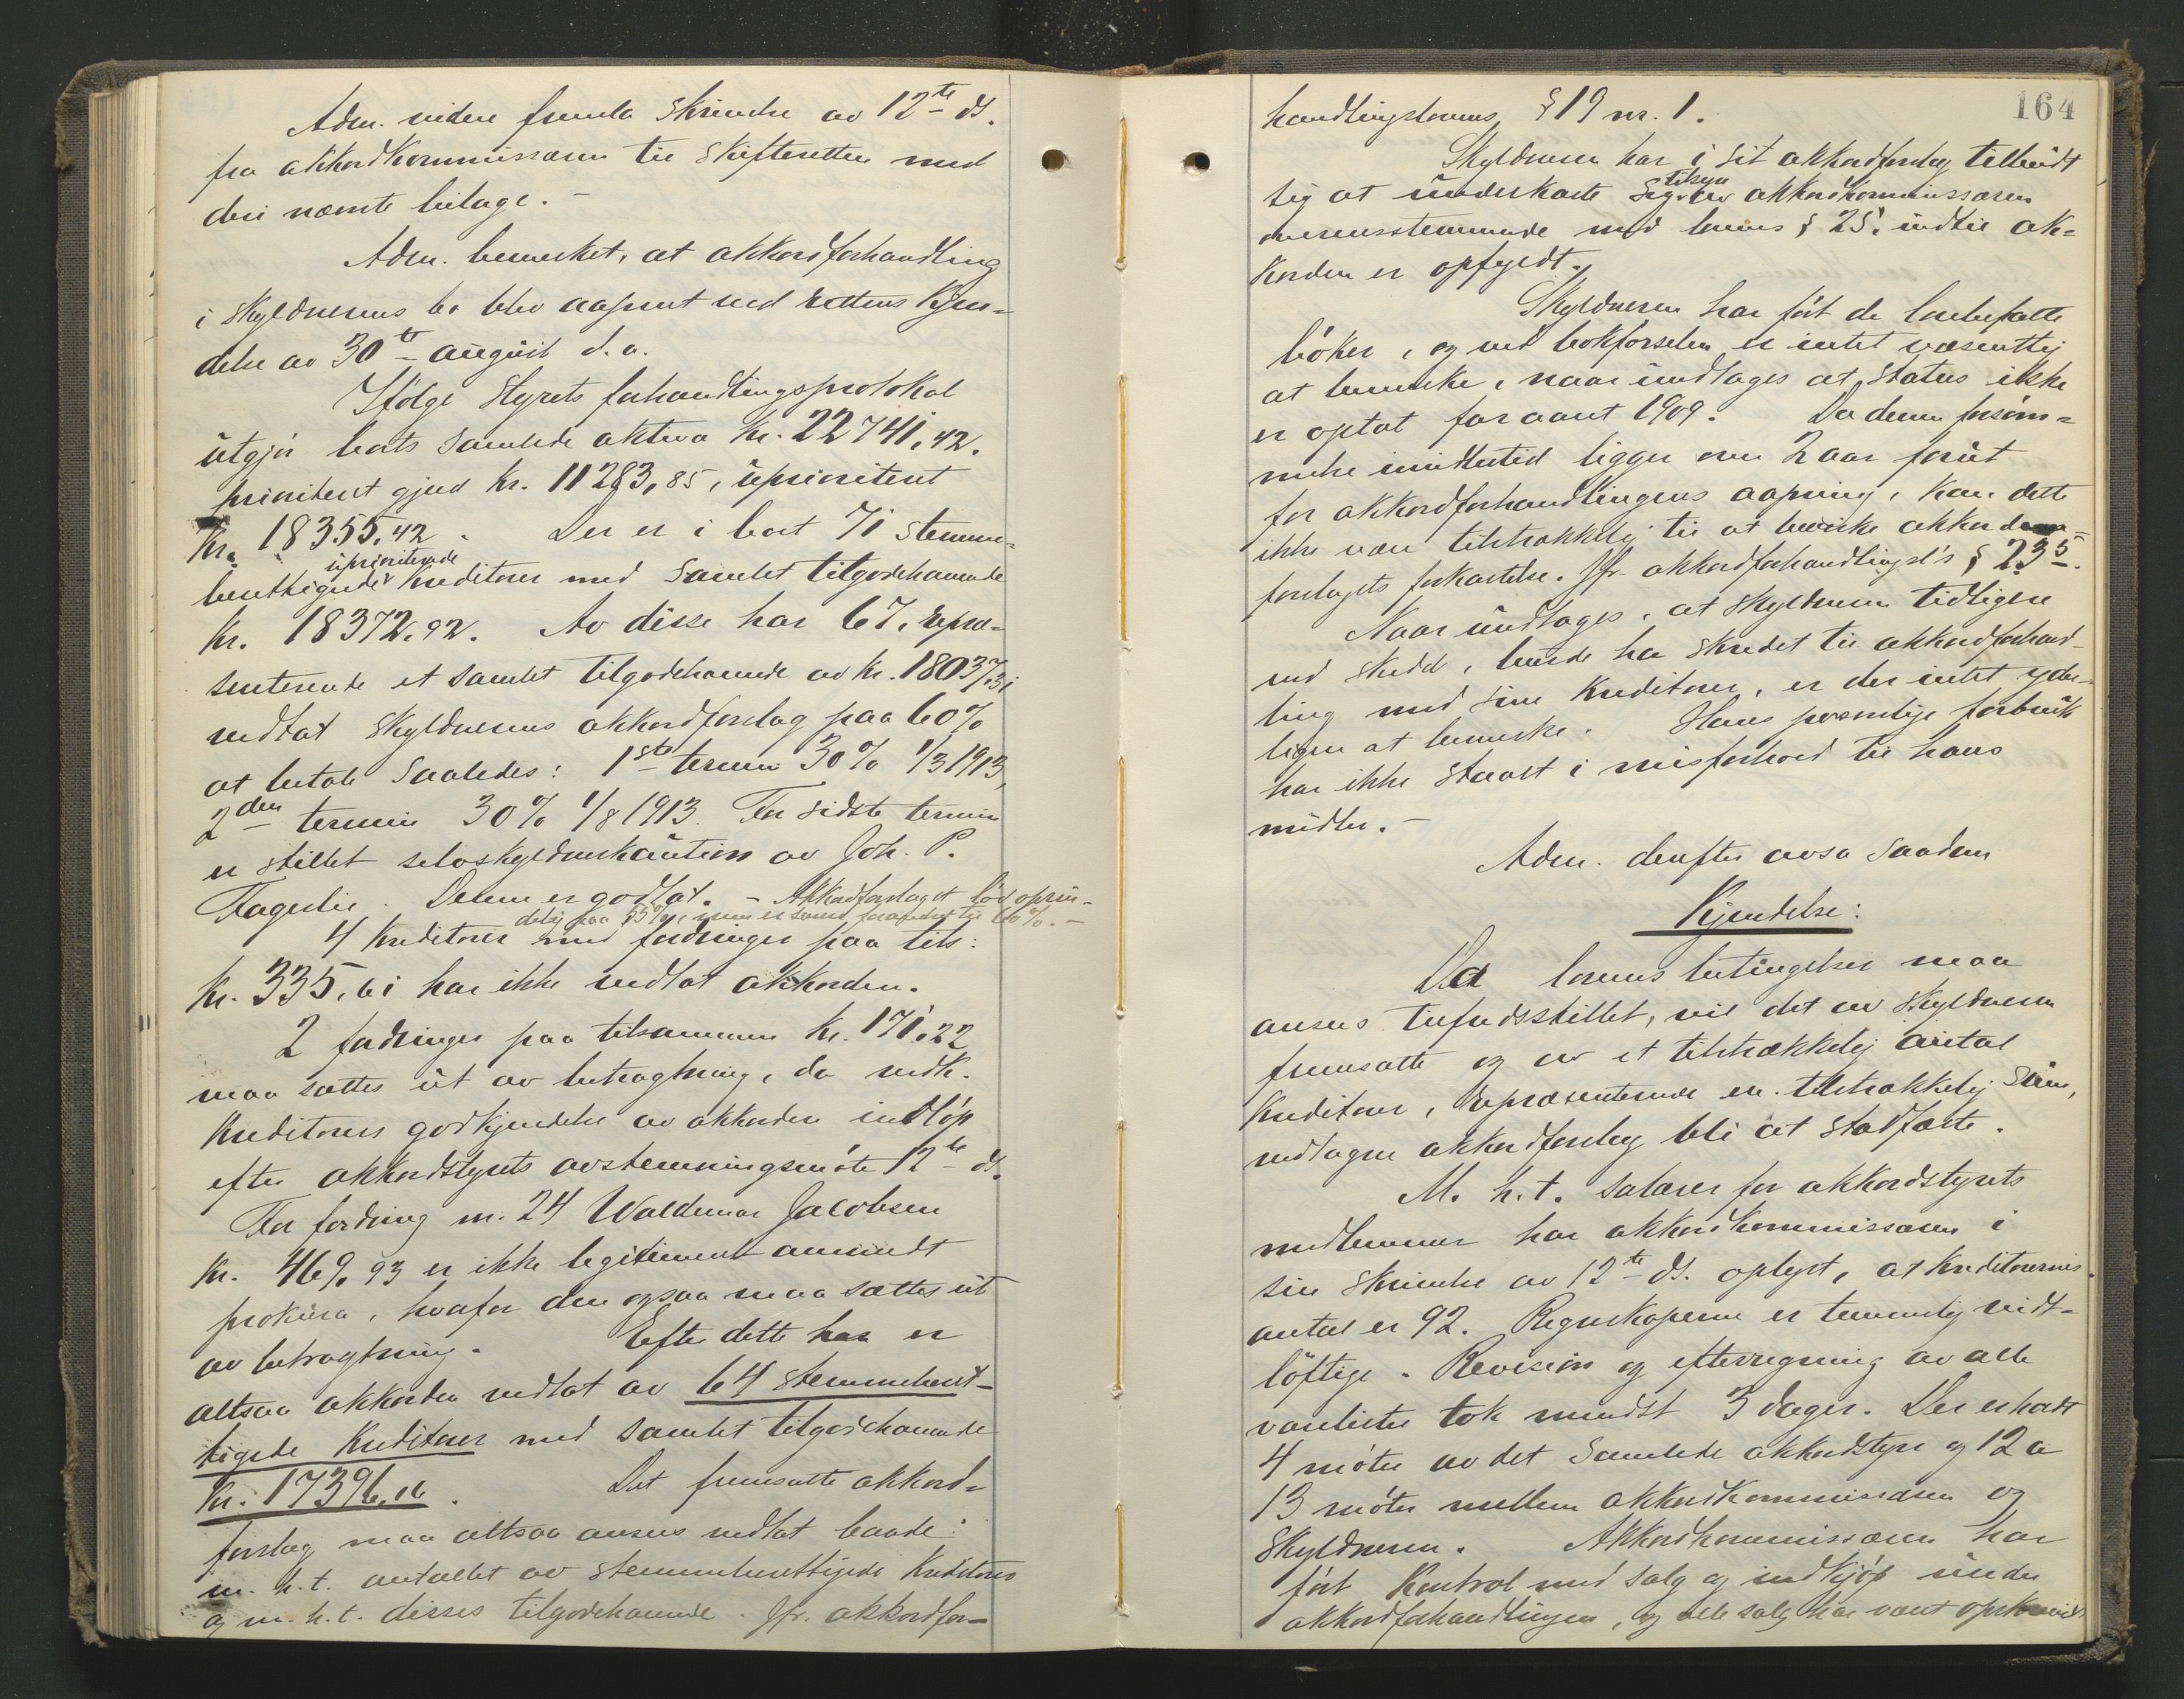 Adm. videre fremla skrivelse av 12te ds.
fra akkordkommissæren til skifteretten med
deri nævnte bilage. -
Adm. bemerket, at akkordforhandling
i skyldnerens bo blev aapnet ved rettens kjen-
delse av 30te august d. a.
Ifølge styrets forhandlingsprotokol
utgjør boets samlede aktiva kr. 22741,42.
prioritert gjeld kr. 11283,85, uprioritert
kr. 18355,42. Der er i boet 71 stemme-
berettigede uprioriterede kreditorer med samlet tilgodehavende
kr. 18372,92. Av disse har 67, repræ-
senterende et samlet tilgodehavende av kr. 18037,31
vedtat skyldnerens akkordforslag paa 60%
at betale saaledes: 1ste termin 30% 1/3 1913,
2den termin 30% 1/8 1913. For sidste termin
er stillet selvskyldnerkaution av Joh. P.
Fagerlie. Denne er godtat. - Akkordforslaget lød oprin-
delig paa 55%, men er senere forandret til 60%. -
4 kreditorer med fordringer paa tils:
kr. 335,61 har ikke vedtat akkorden.
2 fordringer paa tilsammen kr. 171,22
maa sættes ut av betragtning, da vedk.
kreditorers godkjendelse av akkorden indløp
efter akkordstyrets avstemningsmøte 12te ds.
For fordring nr. 24 Waldemar Jacobsen
kr. 469,93 er ikke legitimert anvendt
prokura, hvorfor den ogsaa maa sættes ut
av betragtning. Efter dette har er
altsaa akkorden vedtat av 64 stemmeberet-
tigede kreditorer med samlet tilgodehavende
kr. 17396,16. Det fremsatte akkord-
forslag maa altsaa ansees vedtat baade
m. h. t. antallet av stemmeberettigede kreditorer
og m. h. t. disses tilgodehavende. Jfr. akkordfor-
164
handlingslovens § 19 nr. 1.
Skyldneren har i sit akkordforslag tilbudt
sig at underkaste sig tilsyn av akkordkommissæren
overensstemmende med lovens § 25, indtil ak-
korden er opfyldt.
Skyldneren har ført de lovbefalte
bøker, og ved bokførselen er intet væsentlig
at bemerke, naar undtages at status ikke
er optat for aaret 1909. Da denne forsøm-
melse imidlertid ligger over 2 aar forut
for akkordforhandlingens aapning, kan dette
ikke være tilstrækkelig til at bevirke akkord-
forslagets forkastelse. Jfr. akkordforhandlingsl's § 23 5.
Naar undtages, at skyldneren tidligere
end skedd, burde ha skredet til akkordforhand-
ling med sine kreditorer, er der intet yder-
ligere at bemerke. Hans personlige forbruk
har ikke staaet i misforhold til hans
midler. -
Adm. derefter avsa saadan
Kjendelse:
Da lovens betingelser maa
ansees tilfredsstillet, vil det av skyldneren
fremsatte og av et tilstrækkelig antal
kreditorer, repræsenterende en tilstrækkelig sum,
vedtagne akkordforslag bli at stadfæste.
M. h. t. salærer for akkordstyrets
medlemmer har akkordkommissæren i
sin skrivelse av 12te ds. oplyst, at kreditorernes
antal er 92. Regnskaperne er temmelig vidt-
løftige. Revision og efterregning av alle
varelister tok mindst 3 dager. Der er hat
4 møter av det samlede akkordstyre og 12 a
13 møter mellem akkordkommissæren og
skyldneren. Akkordkommissæren har
ført kontrol med salg og indkjøp under
akkordforhandlingen, og alle salg har vært opskrevet